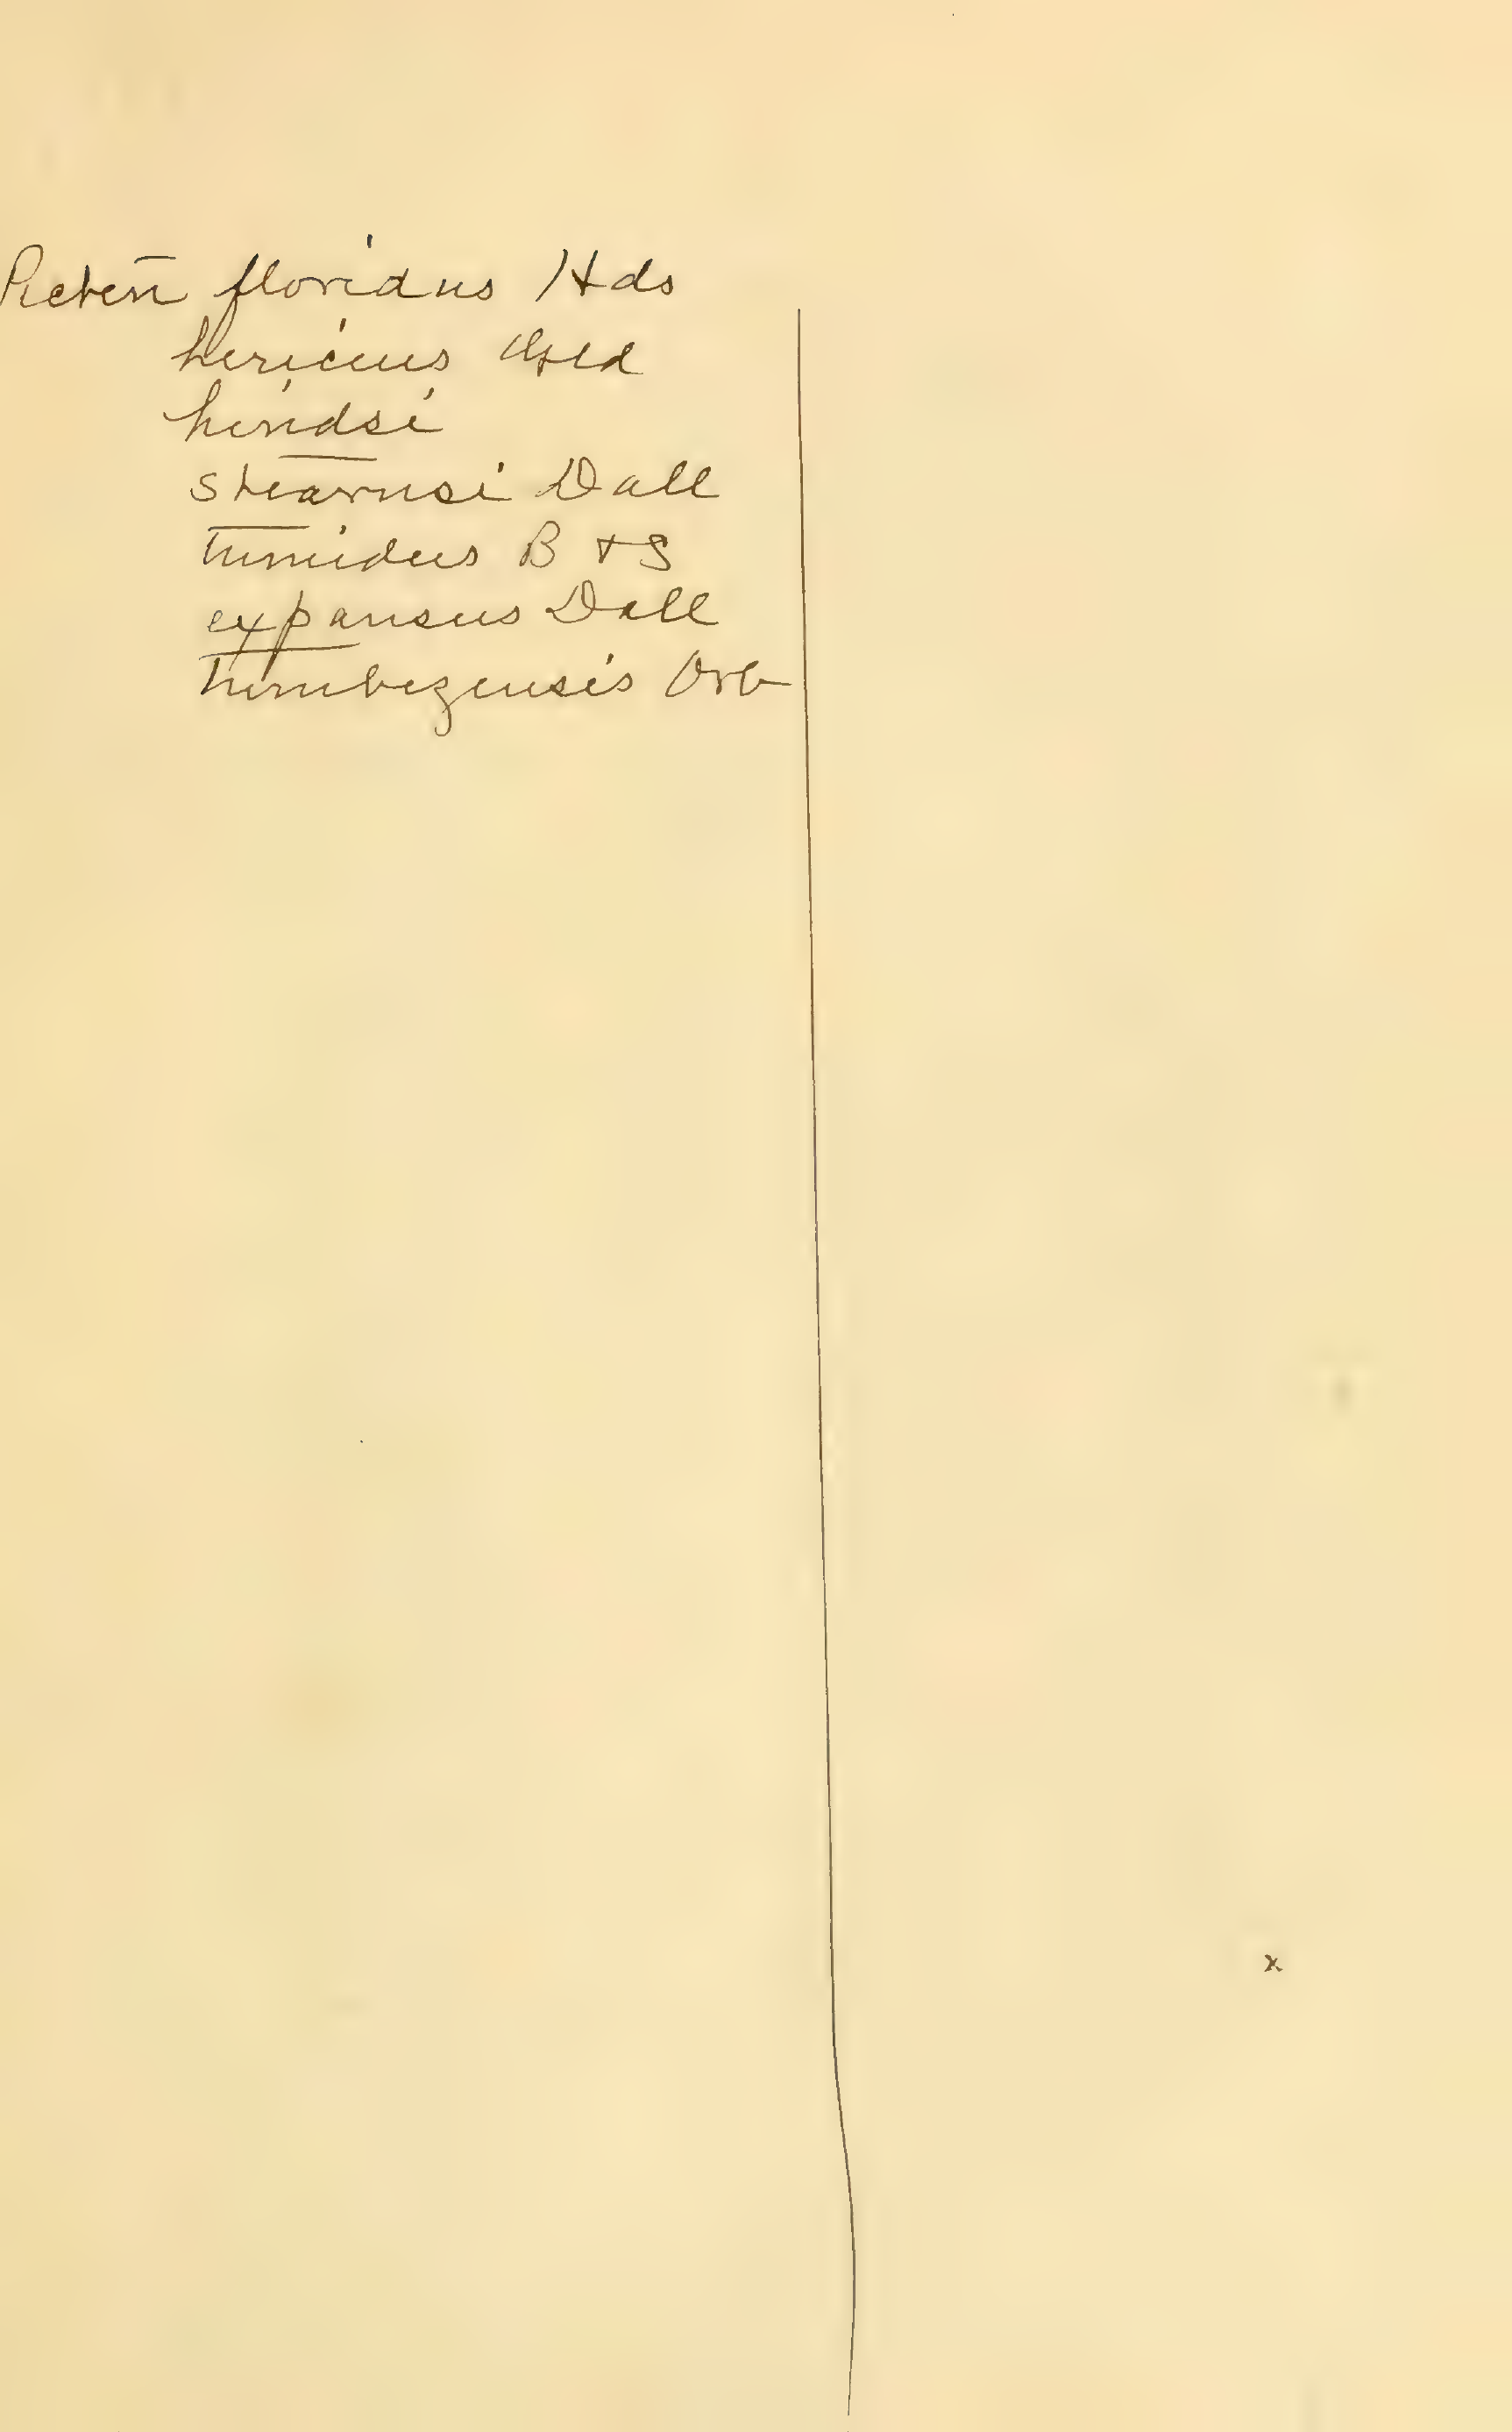 Pecten floridus Hds
hericius Gld
hindsi
stearnsi Dall
tumidus B + S
expansus Dall
tumbezensis Orb
x